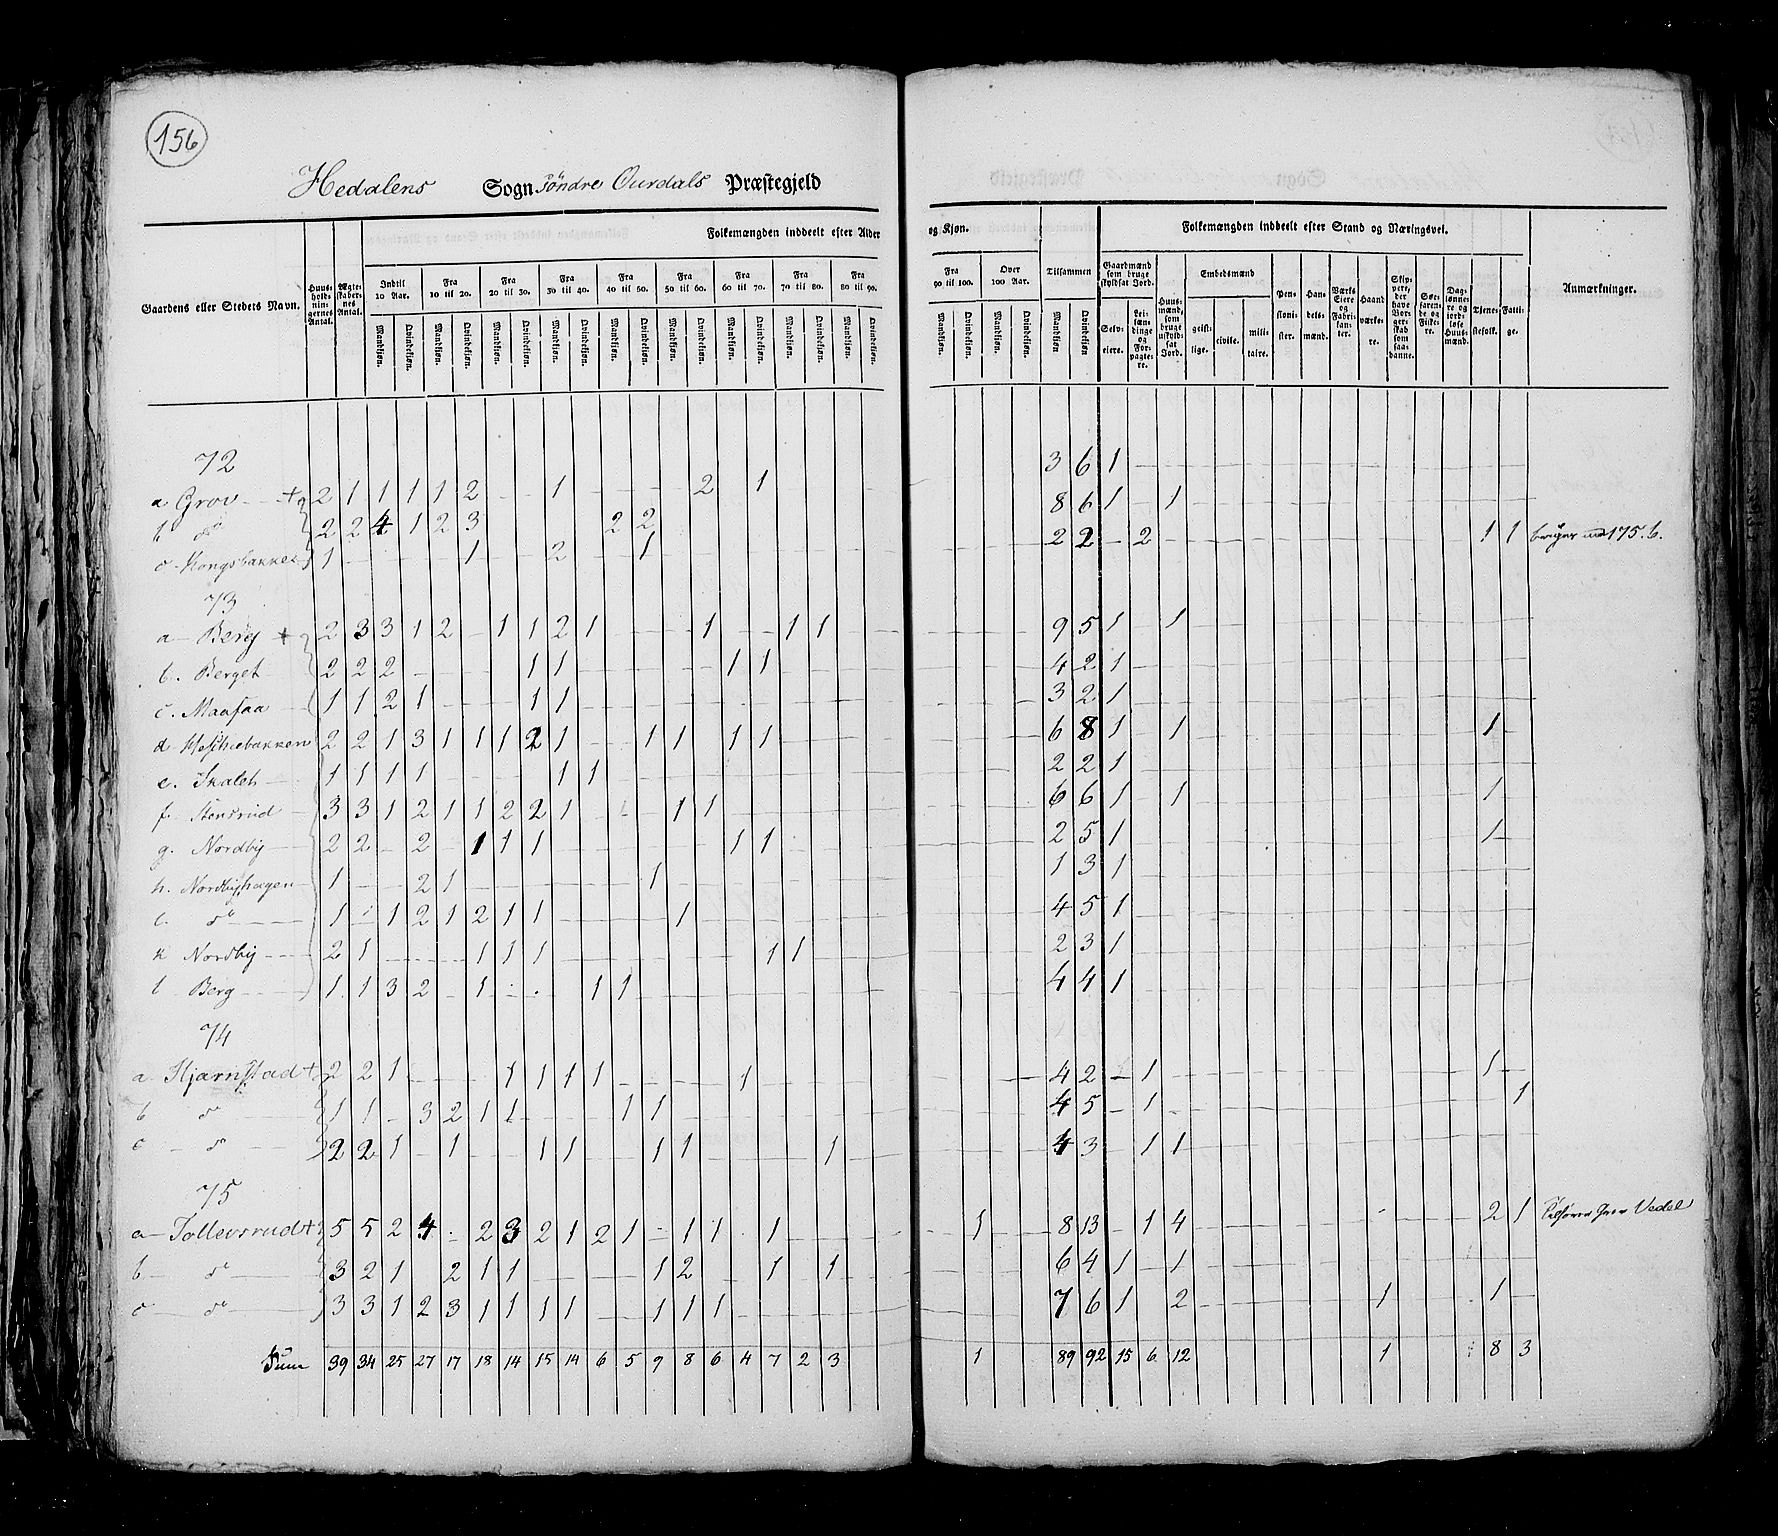 156
Hedalens Sogn Söndre Ourdals Præstegjeld
Folkemængden inddeelt efter Alder og Kjøn. Tilsammen Folkemængden inddeelt efter Stand og Næringsvei.
Gaardens eller Stedets Navn. Huus-holdnin-gernes Antal. Ægte-skaber-nes Antal. Indtil 10 Aar. Fra 10 til 20. Fra 20 til 30. Fra 30 til 40. Fra 40 til 50. Fra 50 til 60. Fra 60 til 70. Fra 70 til 80. Fra 80 til 90. Fra 90 til 100. Over 100 Aar. Anmærkninger.
Mandkjøn. Qvindekjøn. Mandkjøn. Qvindekjøn. Mandkjøn. Qvindekjøn. Mandkjøn. Qvindekjøn. Mandkjøn. Qvindekjøn. Mandkjøn. Qvindekjøn. Mandkjøn. Qvindekjøn. Mandkjøn. Qvindekjøn. Mandkjøn. Qvindekjøn. Mandkjøn. Qvindekjøn. Mandkjøn. Qvindekjøn. Mandkjøn Qvindekjøn
Gaardmænd som bruge skyldsat Jord. Selv-eiere. Lei-læn-dinge og For-pagte-re. Huus-mænd, som bruge uskyld-sat Jord. Embedsmænd geist-lige. civile. mili-taire. Pen-sioni-ster. Han-dels-mænd. Værks Eiere og Fabri-kan-ter. Haand værke-re. Skip-pere, der have Bor-ger-skab som saa-danne. Søe-faren-de og Fiske-re. Dag-lønne-re og jord-løse Huus-mænd. Tjene-stefolk. Fatti-ge.
72
a Grov + 2 1 1 1 1 2 - - 1 - - - - 2 - 1 3 6 1
b do 2 2 4 1 2 3 2 2 8 6 1 - 1
c Kongsbakken 1 - - - - 1 - - 2 - - 1 2 2 - 2 1 1 175.b.
73
a Berg + 2 3 3 1 2 - 1 1 2 1 - - - 1 - - 1 1 9 5 1 - 1
b. Berget 2 2 2 - - - - 1 1 - - - - - 1 1 4 2 1
c. Maasaa 1 1 2 1 1 1 3 2 1
d 2 2 1 3 1 1 1 2 1 - - 1 1 - 1 1 6 8 1 - 1 1
e. Skaleh 1 1 1 1 - - - - 1 1 2 2 1
f. Stensrud 3 3 1 2 1 1 2 2 1 1 1 6 6 1 - 1 1
g. Nordby 2 2 - 2 - 1 1 1 - - - - - - 1 1 2 5 1 1
h. Nordbyhagen 1 - - 2 1 - - - - - - 1 1 3 1
i. do 1 - 1 2 1 2 1 1 - - - - 1 4 5 1
k Nordby 2 1 - - - 1 1 1 - - - - - - - 1 1 2 3 1
l Berg 1 1 3 2 - 1 - - - 1 1 4 4 1
74
a Hjarnstad + 2 2 1 - - - 1 1 1 1 - - - - 1 4 2 - 1 1
b do 1 1 - 3 2 1 1 - - - 1 1 4 5 - 1 1
c do 2 2 1 - 1 - - 1 1 - - 1 1 - - - - 1 4 3 - 1 1
75
a Tollevsrud + 5 5 2 4 - 2 3 2 1 2 1 - 1 1 - 1 1 8 13 - 1 4 2 1 Vedel
b do 3 2 1 2 1 1 - - - - 1 2 - - 1 - 1 6 4 1 - 1
c do 3 3 1 2 3 1 1 1 1 - - 1 1 1 7 6 1 - 2 1 1
Sum 39 34 25 27 17 18 14 15 14 6 5 9 8 6 4 7 2 3 1 89 92 15 6 12 1 8 3